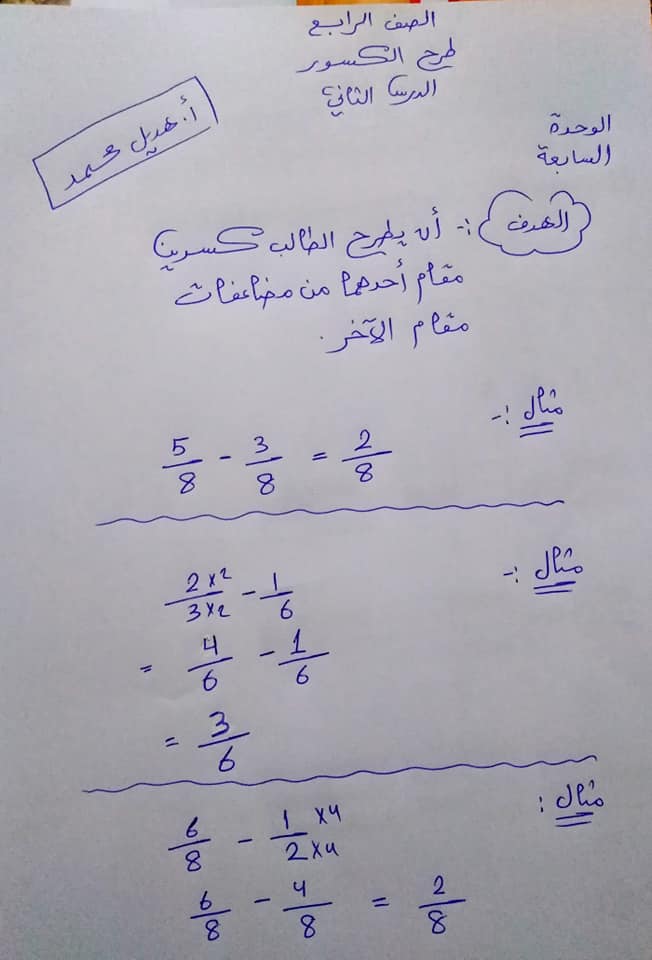 الصف الرابع
طرح الكسور
الدرس الثاني
أ. هديل محمد
الوحدة
السابعة
الهدف :- أن يطرح الطالب كسرين
مقام أحدهما من مضاعفات
مقام الآخر.
مثال :-
5/8 - 3/8 = 2/8
مثال :-
2×2/3×2 - 1/6
= 4/6 - 1/6
= 3/6
مثال :
6/8 - 1×4/2×4
6/8 - 4/8 = 2/8